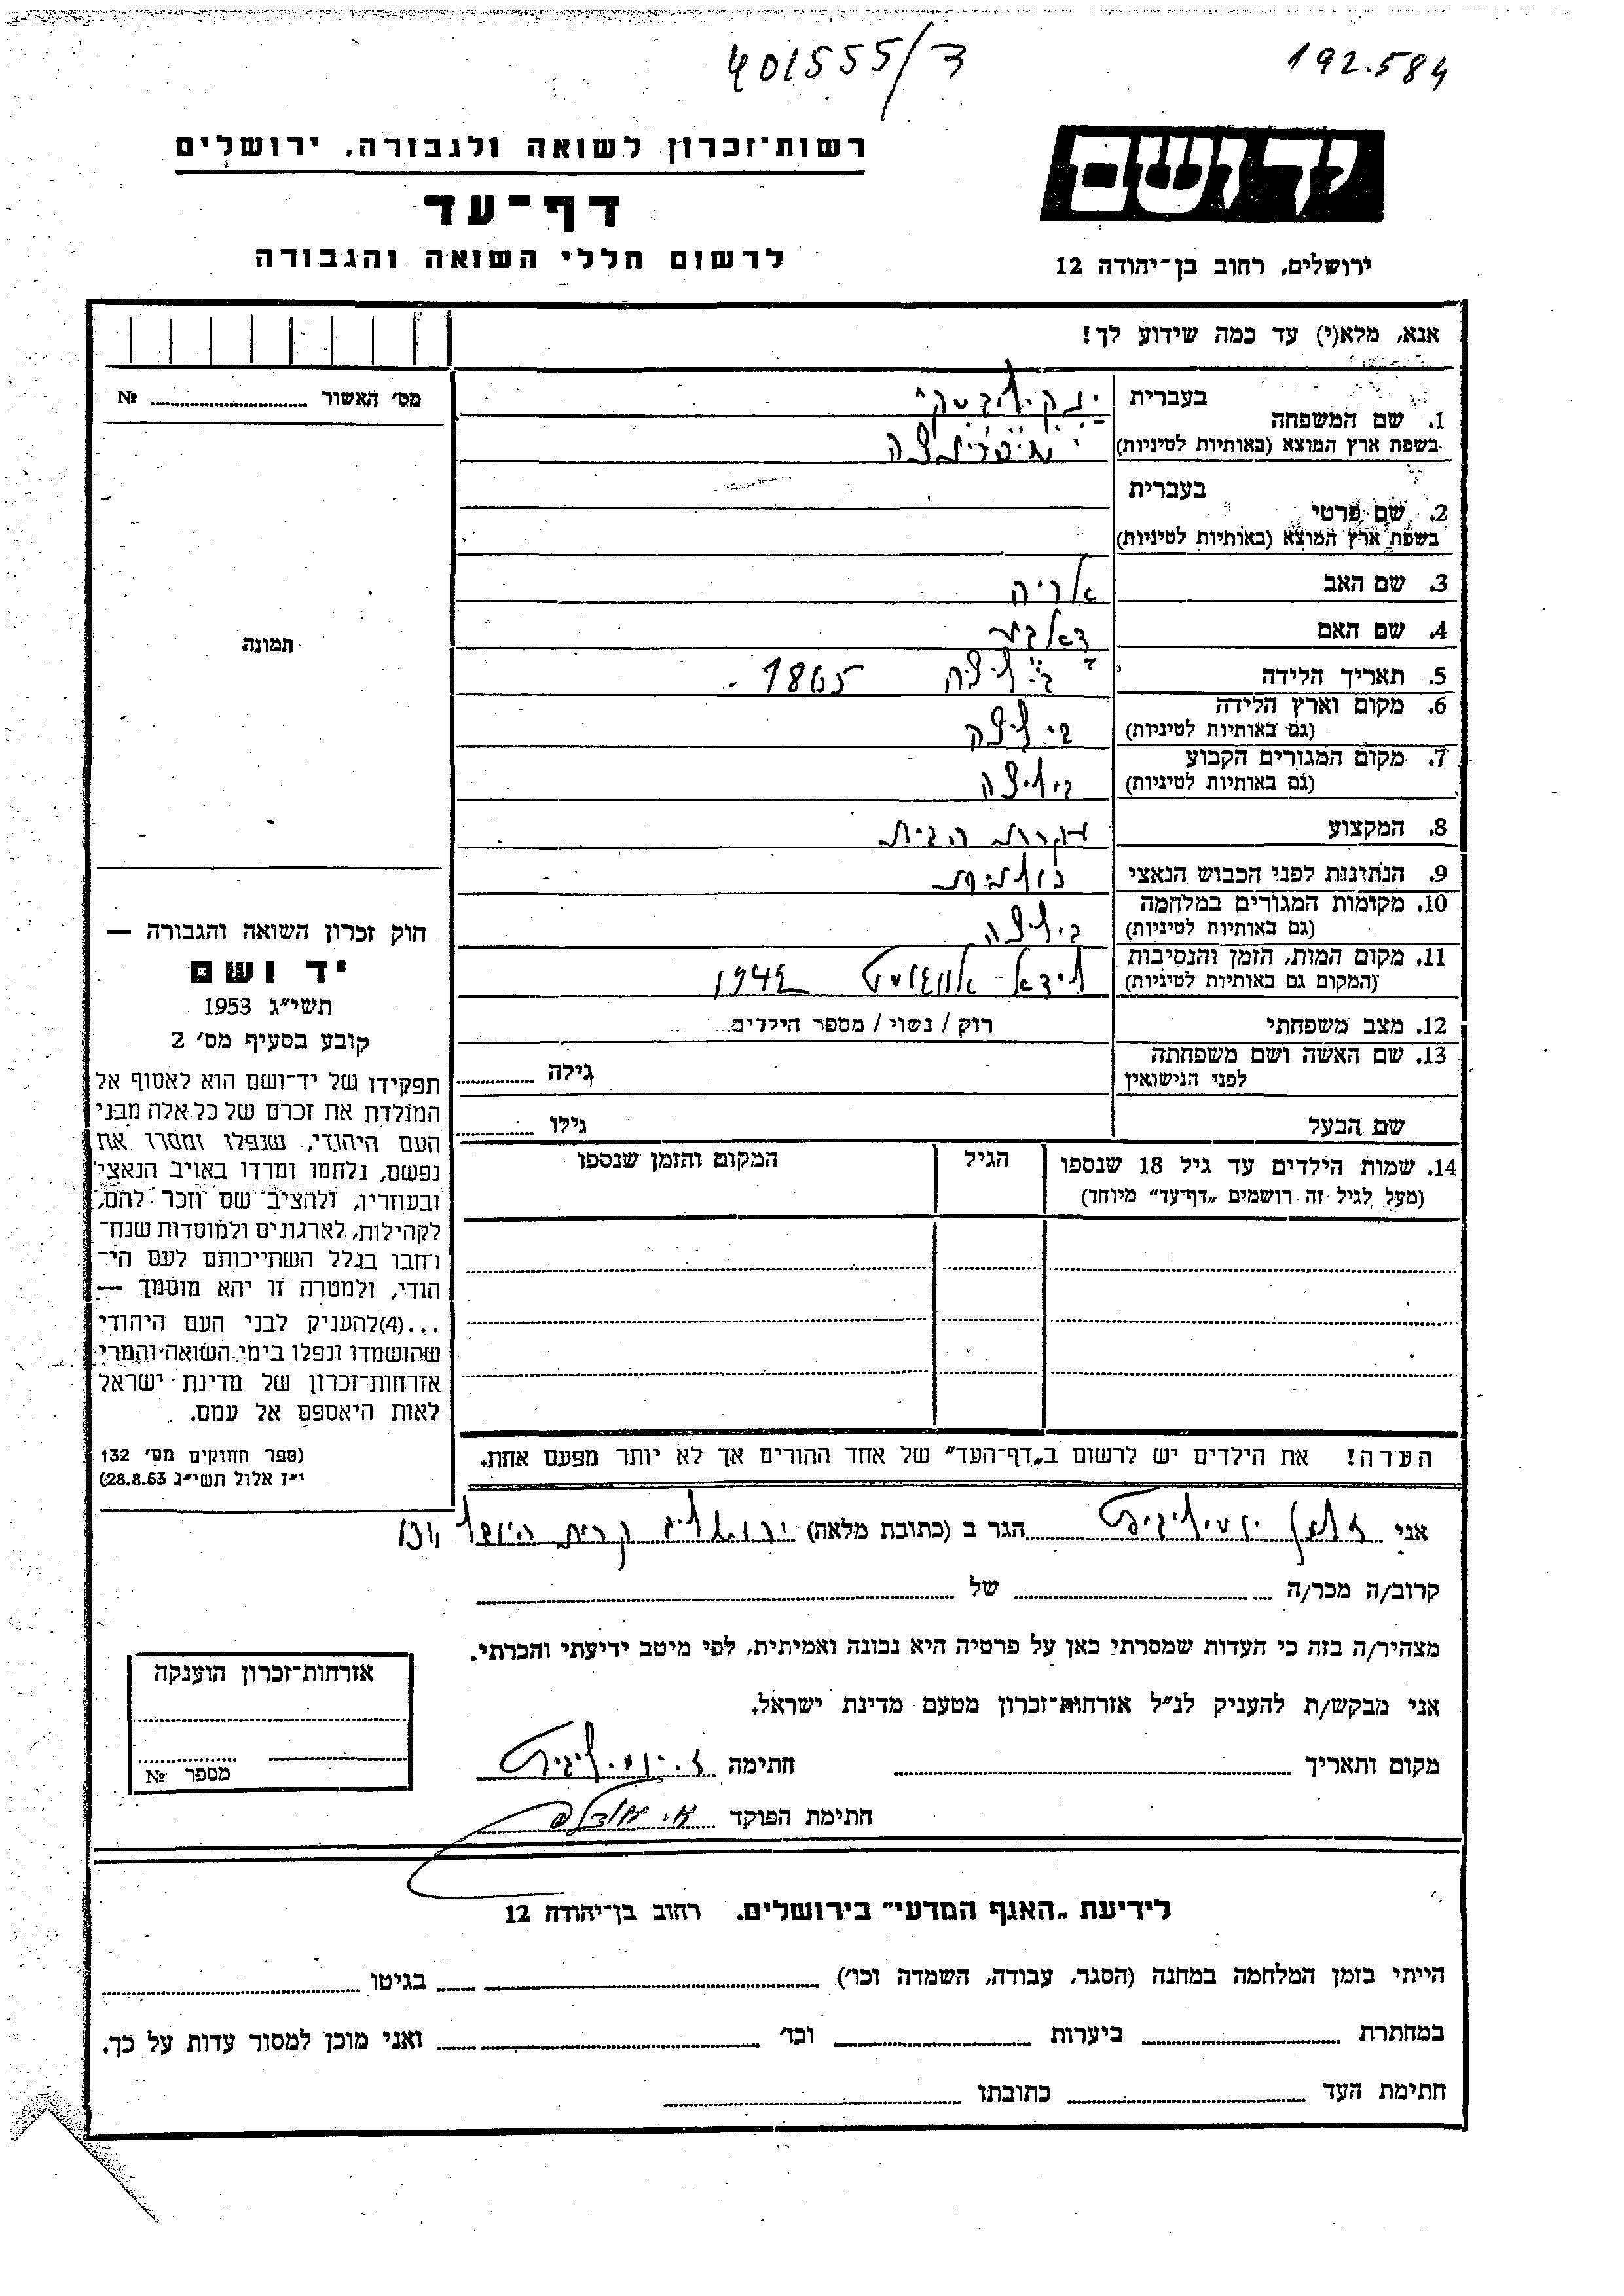 401555/3
192.584
רשות־זכרון לשואה ולגבורה, ירושלים
דף־עד
לרשום חללי השואה והגבורה
ידושם
ירושלים, רחוב בן־יהודה 12
אנא, מלא(י) עד כמה שידוע לך!
1. שם המשפחה
בעברית
בשפת ארץ המוצא (באותיות לטיניות)
2. שם פרטי
בעברית
בשפת ארץ המוצא (באותיות לטיניות)
3. שם האב אריה
4. שם האם
5. תאריך הלידה 1865
6. מקום וארץ הלידה
(גם באותיות לטיניות)
7. מקום המגורים הקבוע
(גם באותיות לטיניות)
8. המקצוע עקרת הבית
9. הנתינות לפני הכבוש הנאצי פולנית
10. מקומות המגורים במלחמה
(גם באותיות לטיניות)
11. מקום המות, הזמן והנסיבות אוגוסט 1942
(המקום גם באותיות לטיניות)
12. מצב משפחתי רוק / נשוי / מספר הילדים
13. שם האשה ושם משפחתה
לפני הנישואין
גילה
שם הבעל גילו
14. שמות הילדים עד גיל 18 שנספו
(מעל לגיל זה רושמים „דף־עד" מיוחד)
הגיל
המקום והזמן שנספו
הערה! את הילדים יש לרשום ב„דף־העד" של אחד ההורים אך לא יותר מפעם אחת.
מס׳ האשור № 
תמונה
חוק זכרון השואה והגבורה —
יד ושם
תשי״ג 1953
קובע בסעיף מס׳ 2
תפקידו של יד־ושם הוא לאסוף אל
המולדת את זכרם של כל אלה מבני
העם היהודי, שנפלו ומסרו את
נפשם, נלחמו ומרדו באויב הנאצי
ובעוזריו, ולהציב שם וזכר להם,
לקהילות, לארגונים ולמוסדות שנח־
רחבו בגלל השתייכותם לעם הי־
הודי, ולמטרה זו יהא מוסמך —
...(4) להעניק לבני העם היהודי
שהושמדו ונפלו בימי השואה והמרי
אזרחות־זכרון של מדינת ישראל
לאות היאספם אל עמם.
(ספר החוקים מס׳ 132
י״ז אלול תשי״ג 28.8.53)
אני הגר ב (כתובת מלאה) ירושלים קרית היובל
קרוב/ה מכר/ה של
מצהיר/ה בזה כי העדות שמסרתי כאן על פרטיה היא נכונה ואמיתית, לפי מיטב ידיעתי והכרתי.
אני מבקש/ת להעניק לנ״ל אזרחות־זכרון מטעם מדינת ישראל.
מקום ותאריך חתימה
חתימת הפוקד
אזרחות־זכרון הוענקה
מספר №
לידיעת „האגף המדעי" בירושלים. רחוב בן־יהודה 12
הייתי בזמן המלחמה במחנה (הסגר, עבודה, השמדה וכו׳) בגיטו
במחתרת ביערות וכו׳ ואני מוכן למסור עדות על כך.
חתימת העד כתובתו